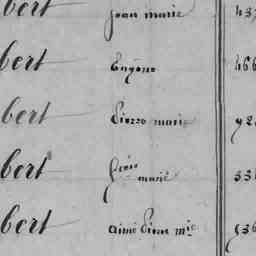 bert Jean marie 437
bert Eugène 466
bert Pierre marie 92
bert marie 33
bert aimé Pierre mie 536